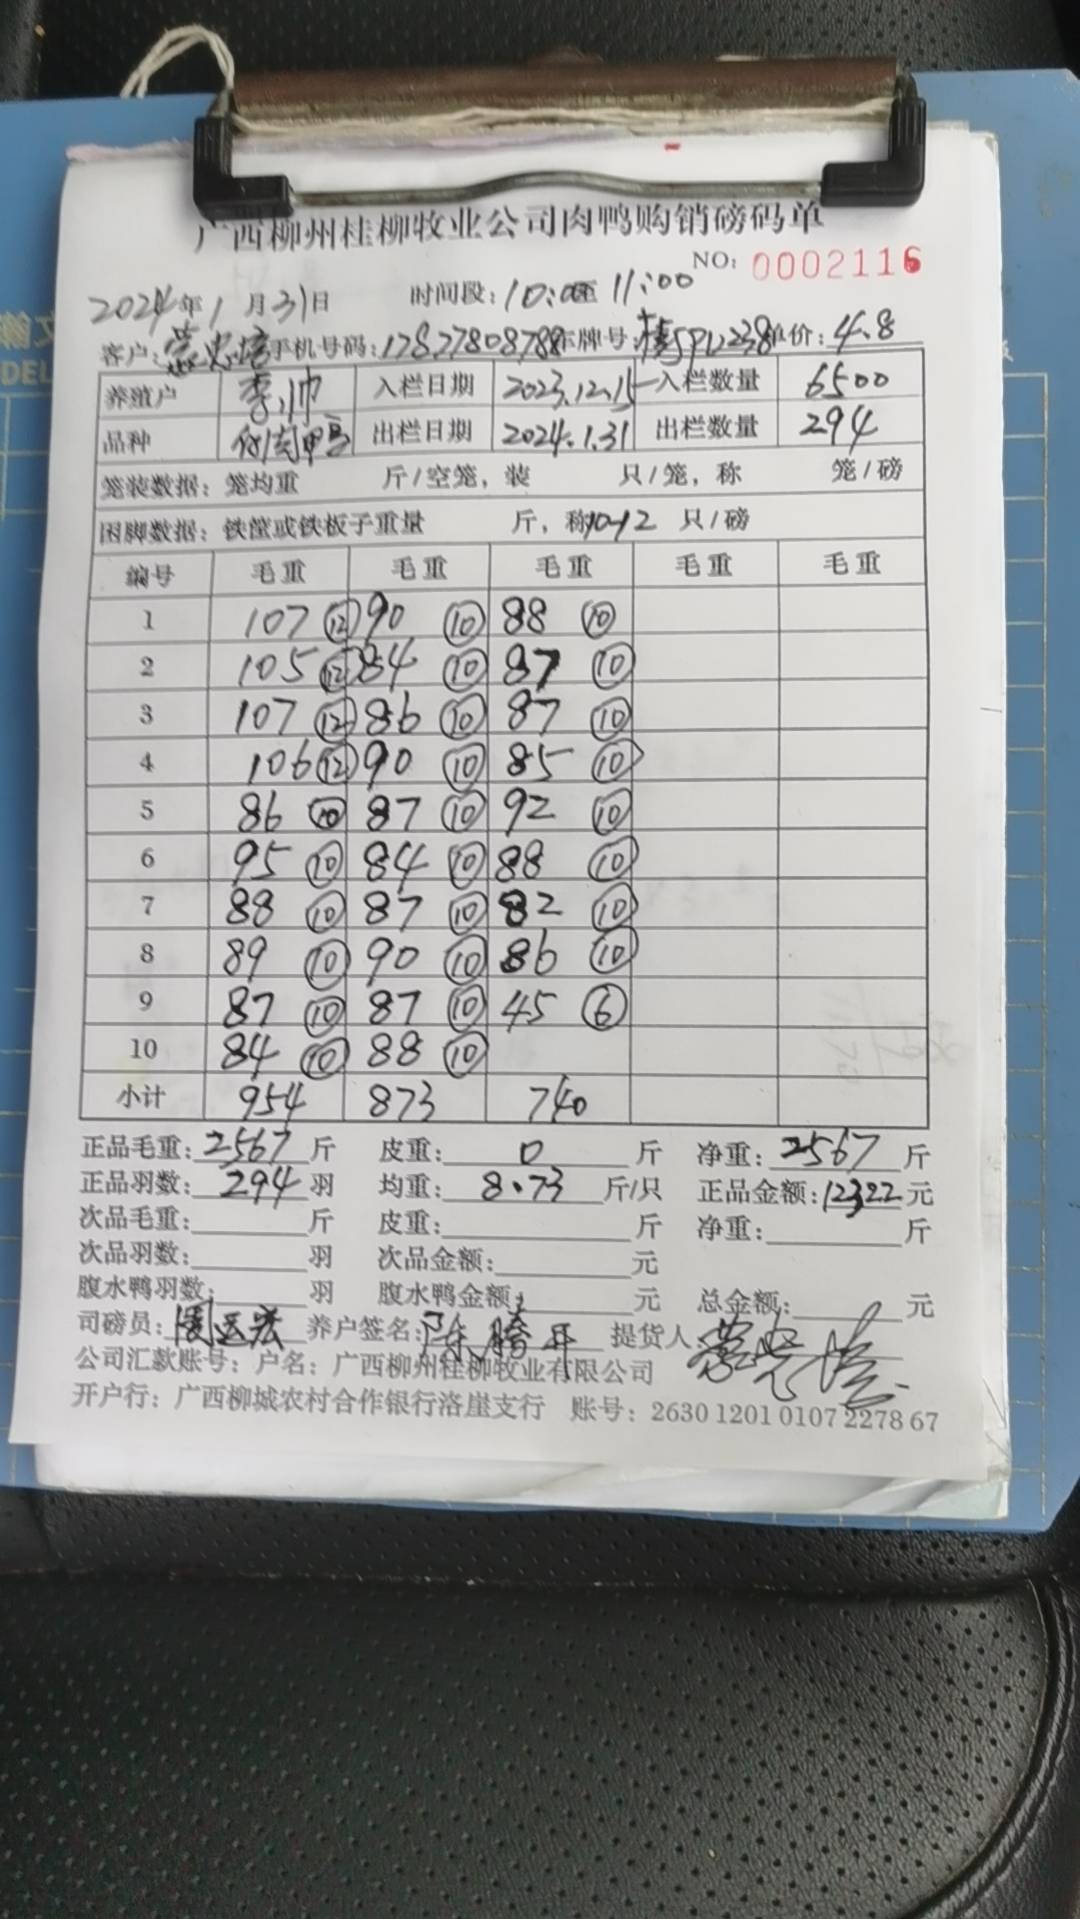 广西柳州桂柳牧业公司肉鸭购销磅码单
NO: 0002116
2024年1月31日 时间段: 10:00至 11:00
客户: 手机号码: 17877808788 车牌号: 单价: 4.8
养殖户 李帅 入栏日期 2023.12.15 入栏数量 6500
品种 出栏日期 2024.1.31 出栏数量 294
笼装数据: 笼均重 斤/空笼, 装 只/笼, 称 笼/磅
困脚数据: 铁筐或铁板子重量 斤, 称10-12 只/磅
编号 毛重 毛重 毛重 毛重 毛重
1 107 ⑫ 90 ⑩ 88 ⑩
2 105 ⑫ 84 ⑩ 87 ⑩
3 107 ⑫ 86 ⑩ 87 ⑩
4 106 ⑫ 90 ⑩ 85 ⑩
5 86 ⑩ 87 ⑩ 92 ⑩
6 95 ⑩ 84 ⑩ 88 ⑩
7 88 ⑩ 87 ⑩ 82 ⑩
8 89 ⑩ 90 ⑩ 86 ⑩
9 87 ⑩ 87 ⑩ 45 ⑥
10 84 ⑩ 88 ⑩
小计 954 873 740
正品毛重: 2567 斤 皮重: 0 斤 净重: 2567 斤
正品羽数: 294 羽 均重: 8.73 斤/只 正品金额: 12322 元
次品毛重: 斤 皮重: 斤 净重: 斤
次品羽数: 羽 次品金额: 元
腹水鸭羽数: 羽 腹水鸭金额: 元 总金额: 元
司磅员: 养户签名: 提货人
公司汇款账号: 户名: 广西柳州桂柳牧业有限公司
开户行: 广西柳城农村合作银行洛崖支行 账号: 2630 1201 0107 2278 67